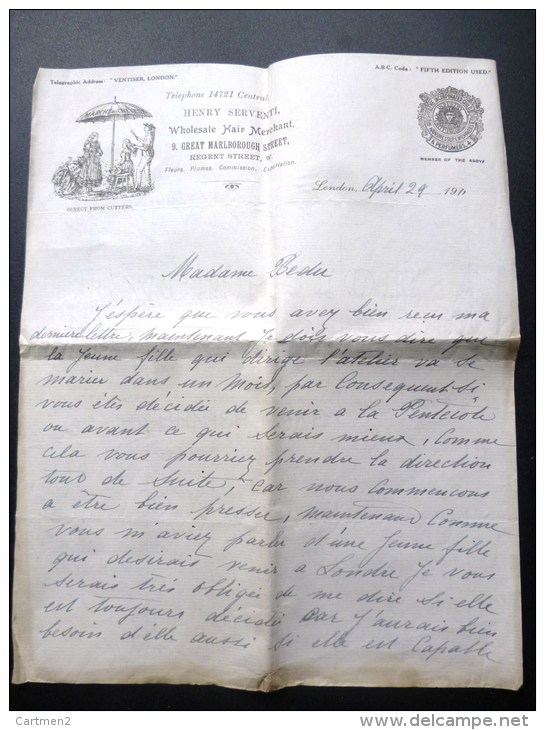 Telegraphic Address: "VENTISER, LONDON."
A.B.C. Code: "FIFTH EDITION USED."
Telephone 14721 Central.
HENRY SERVENTI,
Wholesale Hair Merchant,
9, GREAT MARLBOROUGH STREET,
REGENT STREET, W.
Fleurs, Plumes, Commission, Exportation.
DIRECT FROM CUTTERS.
& PERFUMERS
MEMBER OF THE ABOVE
London, April 29 191
Madame Bedu
J'éspère que vous avez bien recu ma
derniere lettre, maintenant Je dois vous dire que
la Jeune fille qui dirige l'atelier va se
marier dans un mois, par Consequent si
vous étes décidée de venir a la Pentecote
ou avant ce qui serais mieux, Comme
cela vous pourriez prendre la direction
tout de suite, car nous Commencons
a être bien presser, maintenant Comme
vous m'aviez parler d'une Jeune fille
qui desirais venir a Londre Je vous
serais très obligée de me dire si elle
est toujours décidée car J'aurais bien
besoin d'elle aussi si elle est Capable
Cartmen2
www.delcampe.net